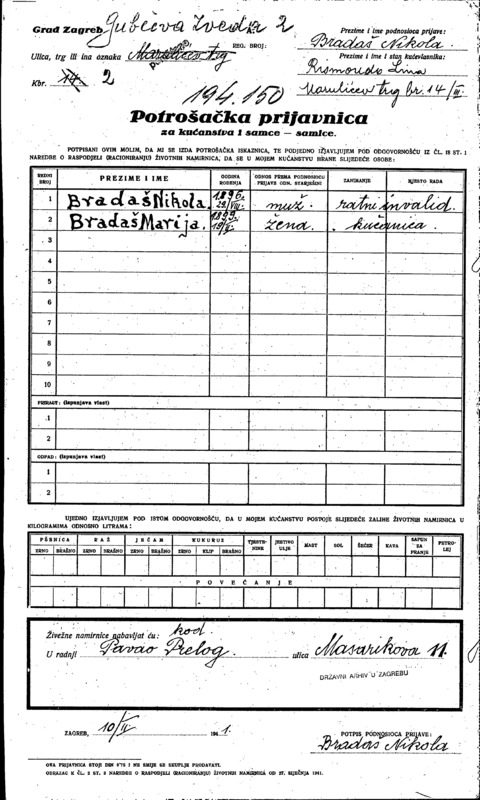 Grad Zagreb Gubčeva Zvezda 2
Ulica, trg ili ina oznaka Marulićev trg
REG. BROJ:
Kbr. 14. 2
Prezime i ime podnosioca prijave:
Bradaš Nikola.
Prezime i ime i stan kućevlasnika:
Rismondo Lina
Marulićev trg br. 14/III
194.150
Potrošačka prijavnica
za kućanstva i samce – samice.
POTPISANI OVIM MOLIM, DA MI SE IZDA POTROŠAČKA ISKAZNICA, TE PODJEDNO IZJAVLJUJEM POD ODGOVORNOŠĆU IZ ČL. 15 ST. 1
NAREDBE O RASPODJELI (RACIONIRANJU) ŽIVOTNIH NAMIRNICA, DA SE U MOJEM KUĆANSTVU HRANE SLIJEDEĆE OSOBE:
REDNI BROJ PREZIME I IME GODINA ROĐENJA ODNOS PREMA PODNOSIOCU PRIJAVE ODN. STARJEŠINI ZANIMANJE MJESTO RADA
1 Bradaš Nikola. 1896. 22/VIII. muž. ratni invalid.
2 Bradaš Marija. 1899. žena. kućanica.
3
4
5
6
7
8
9
10
PRIRAST: (Ispunjava vlast)
1
2
ODPAD: (Ispunjava vlast)
1
2
UJEDNO IZJAVLJUJEM POD ISTOM ODGOVORNOŠĆU, DA U MOJEM KUĆANSTVU POSTOJE SLIJEDEĆE ZALIHE ŽIVOTNIH NAMIRNICA U
KILOGRAMIMA ODNOSNO LITRAMA:
PŠENICA RAŽ JEČAM KUKURUZ TJESTENINE JESTIVO ULJE MAST SOL ŠEĆER KAVA SAPUN ZA PRANJE PETROLEJ
ZRNO BRAŠNO ZRNO BRAŠNO ZRNO BRAŠNO ZRNO KLIP BRAŠNO
POVEĆANJE
Živežne namirnice nabavljat ću: kod.
U radnji Pavao Prelog. ulica Masarikova 11.
DRŽAVNI ARHIV U ZAGREBU
ZAGREB, 10/II 1941.
POTPIS PODNOSIOCA PRIJAVE:
Bradaš Nikola
OVA PRIJAVNICA STOJI DIN 0'75 I NE SMIJE SE SKUPLJE PRODAVATI.
OBRAZAC K ČL. 2 ST. 3 NAREDBE O RASPODJELI (RACIONIRANJU) ŽIVOTNIH NAMIRNICA OD 27. SIJEČNJA 1941.